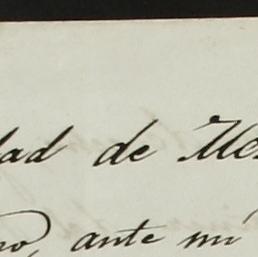 dad de Mé
no, ante mí